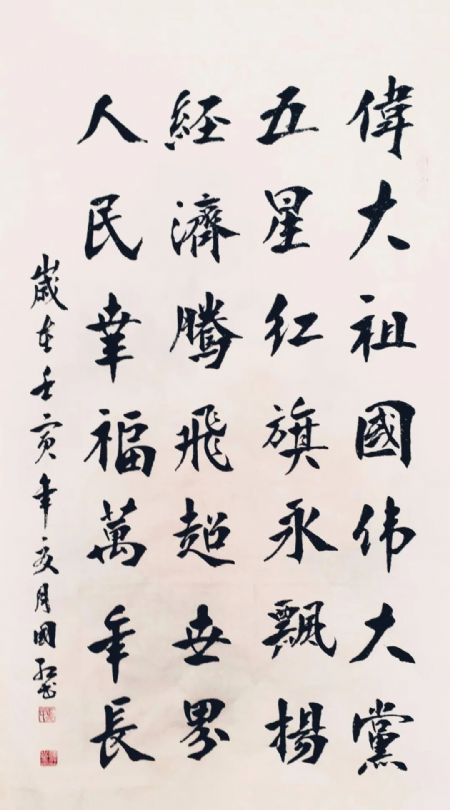 偉大祖國伟大黨
五星红旗永飄揚
經濟騰飛超世界
人民幸福萬年長
歲在壬寅年亥月國红书